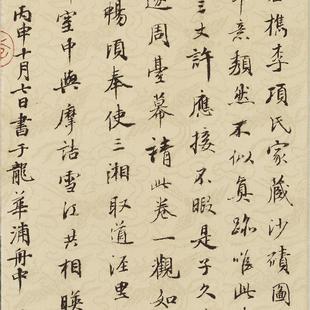 檇李項氏家藏沙磧圖
類然不似真跡唯此
三丈許應接不暇是子久
周臺幕請此卷一觀如
暢頃奉使三湘取道涇里
室中與摩詰雪江共相暎
丙申十月七日書于龍華浦舟中